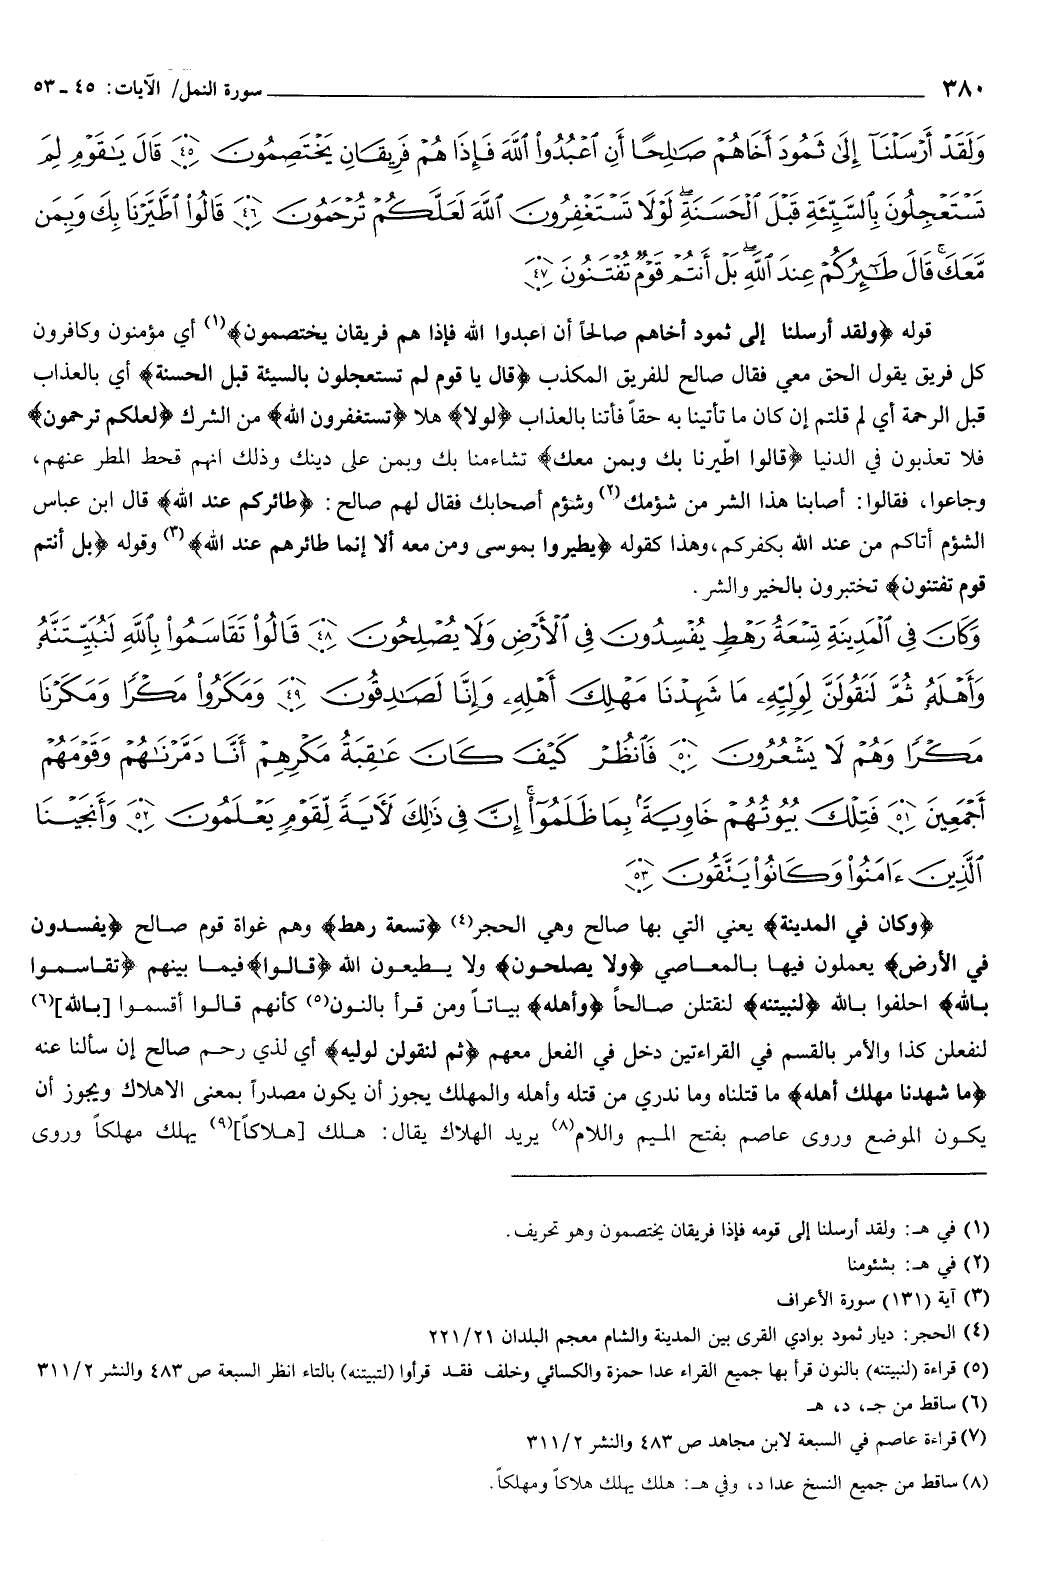 ٣٨٠ سورة النمل/ الآيات: ٤٥ ـ ٥٣
وَلَقَدْ أَرْسَلْنَآ إِلَىٰ ثَمُودَ أَخَاهُمْ صَٰلِحًا أَنِ ٱعْبُدُوا۟ ٱللَّهَ فَإِذَا هُمْ فَرِيقَانِ يَخْتَصِمُونَ ﴿٤٥﴾ قَالَ يَٰقَوْمِ لِمَ
تَسْتَعْجِلُونَ بِٱلسَّيِّئَةِ قَبْلَ ٱلْحَسَنَةِ ۖ لَوْلَا تَسْتَغْفِرُونَ ٱللَّهَ لَعَلَّكُمْ تُرْحَمُونَ ﴿٤٦﴾ قَالُوا۟ ٱطَّيَّرْنَا بِكَ وَبِمَن
مَّعَكَ ۚ قَالَ طَٰٓئِرُكُمْ عِندَ ٱللَّهِ ۖ بَلْ أَنتُمْ قَوْمٌ تُفْتَنُونَ ﴿٤٧﴾
قوله ﴿ولقد أرسلنا إلى ثمود أخاهم صالحاً أن اعبدوا الله فإذا هم فريقان يختصمون﴾(١) أي مؤمنون وكافرون
كل فريق يقول الحق معي فقال صالح للفريق المكذب ﴿قال يا قوم لم تستعجلون بالسيئة قبل الحسنة﴾ أي بالعذاب
قبل الرحمة أي لم قلتم إن كان ما تأتينا به حقاً فأتنا بالعذاب ﴿لولا﴾ هلا ﴿تستغفرون الله﴾ من الشرك ﴿لعلكم ترحمون﴾
فلا تعذبون في الدنيا ﴿قالوا اطّيرنا بك وبمن معك﴾ تشاءمنا بك وبمن على دينك وذلك انهم قحط المطر عنهم،
وجاعوا، فقالوا: أصابنا هذا الشر من شؤمك(٢) وشؤم أصحابك فقال لهم صالح: ﴿طائركم عند الله﴾ قال ابن عباس
الشؤم أتاكم من عند الله بكفركم،وهذا كقوله ﴿يطيروا بموسى ومن معه ألا إنما طائرهم عند الله﴾(٣) وقوله ﴿بل أنتم
قوم تفتنون﴾ تختبرون بالخير والشر.
وَكَانَ فِى ٱلْمَدِينَةِ تِسْعَةُ رَهْطٍ يُفْسِدُونَ فِى ٱلْأَرْضِ وَلَا يُصْلِحُونَ ﴿٤٨﴾ قَالُوا۟ تَقَاسَمُوا۟ بِٱللَّهِ لَنُبَيِّتَنَّهُۥ
وَأَهْلَهُۥ ثُمَّ لَنَقُولَنَّ لِوَلِيِّهِۦ مَا شَهِدْنَا مَهْلِكَ أَهْلِهِۦ وَإِنَّا لَصَٰدِقُونَ ﴿٤٩﴾ وَمَكَرُوا۟ مَكْرًا وَمَكَرْنَا
مَكْرًا وَهُمْ لَا يَشْعُرُونَ ﴿٥٠﴾ فَٱنظُرْ كَيْفَ كَانَ عَٰقِبَةُ مَكْرِهِمْ أَنَّا دَمَّرْنَٰهُمْ وَقَوْمَهُمْ
أَجْمَعِينَ ﴿٥١﴾ فَتِلْكَ بُيُوتُهُمْ خَاوِيَةًۢ بِمَا ظَلَمُوٓا۟ ۗ إِنَّ فِى ذَٰلِكَ لَـَٔايَةً لِّقَوْمٍ يَعْلَمُونَ ﴿٥٢﴾ وَأَنجَيْنَا
ٱلَّذِينَ ءَامَنُوا۟ وَكَانُوا۟ يَتَّقُونَ ﴿٥٣﴾
﴿وكان في المدينة﴾ يعني التي بها صالح وهي الحجر(٤) ﴿تسعة رهط﴾ وهم غواة قوم صالح ﴿يفسدون
في الأرض﴾ يعملون فيها بالمعاصي ﴿ولا يصلحون﴾ ولا يطيعون الله ﴿قالوا﴾فيما بينهم ﴿تقاسموا
بالله﴾ احلفوا بالله ﴿لنبيتنه﴾ لنقتلن صالحاً ﴿وأهله﴾ بياتاً ومن قرأ بالنون(٥) كأنهم قالوا أقسموا [بالله](٦)
لنفعلن كذا والأمر بالقسم في القراءتين دخل في الفعل معهم ﴿ثم لنقولن لوليه﴾ أي لذي رحم صالح إن سألنا عنه
﴿ما شهدنا مهلك أهله﴾ ما قتلناه وما ندري من قتله وأهله والمهلك يجوز أن يكون مصدراً بمعنى الاهلاك ويجوز أن
يكون الموضع وروى عاصم بفتح الميم واللام(٨) يريد الهلاك يقال: هلك [هلاكاً](٩) يهلك مهلكاً وروى
(١) في هـ: ولقد أرسلنا إلى قومه فإذا فريقان يختصمون وهو تحريف.
(٢) في هـ: بشئومنا
(٣) آية (١٣١) سورة الأعراف
(٤) الحجر: ديار ثمود بوادي القرى بين المدينة والشام معجم البلدان ٢٢١/٢١
(٥) قراءة (لنبيتنه) بالنون قرأ بها جميع القراء عدا حمزة والكسائي وخلف فقد قرأوا (لتبيتنه) بالتاء انظر السبعة ص ٤٨٣ والنشر ٣١١/٢
(٦) ساقط من جـ، د، هـ
(٧) قراءة عاصم في السبعة لابن مجاهد ص ٤٨٣ والنشر ٣١١/٢
(٨) ساقط من جميع النسخ عدا د، وفي هـ: هلك يهلك هلاكاً ومهلكاً.